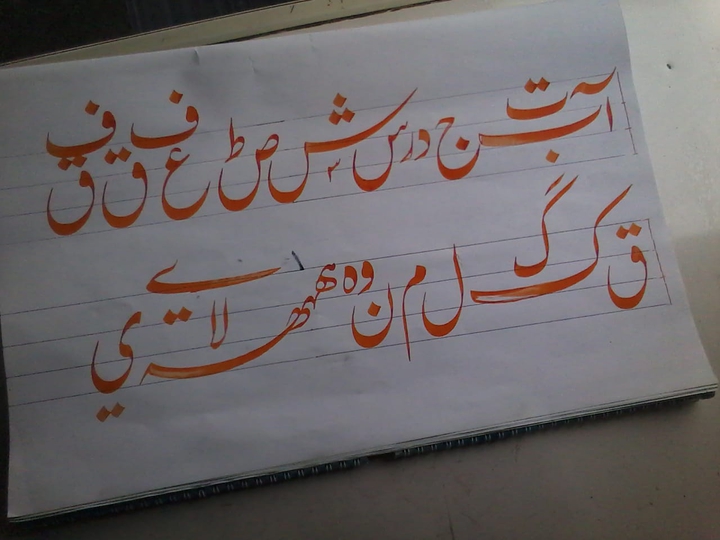 آ ب ت ج د ر س ش ص ط ع ف ق ف ق
ق ک گ ل م ن و ہ لا ي ے